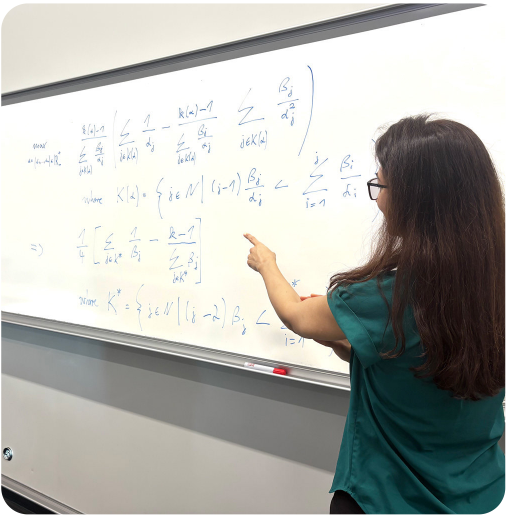 max \frac{k(α)-1}{\sum_{j∈K(α)} \frac{β_j}{α_j}} ( \sum_{j∈K(α)} \frac{1}{α_j} - \frac{k(α)-1}{\sum_{j∈K(α)} \frac{β_j}{α_j}} \sum_{j∈K(α)} \frac{β_j}{α_j^2} )
where K(α) = { j ∈ N | (j-1) \frac{β_j}{α_j} < \sum_{i=1}^{j} \frac{β_i}{α_i}
=> \frac{1}{4} [ \sum_{j∈K^*} \frac{1}{β_j} - \frac{k-1}{\sum_{j∈K^*} β_j} ]
where K^* = { j ∈ N | (j-2) β_j < i=1